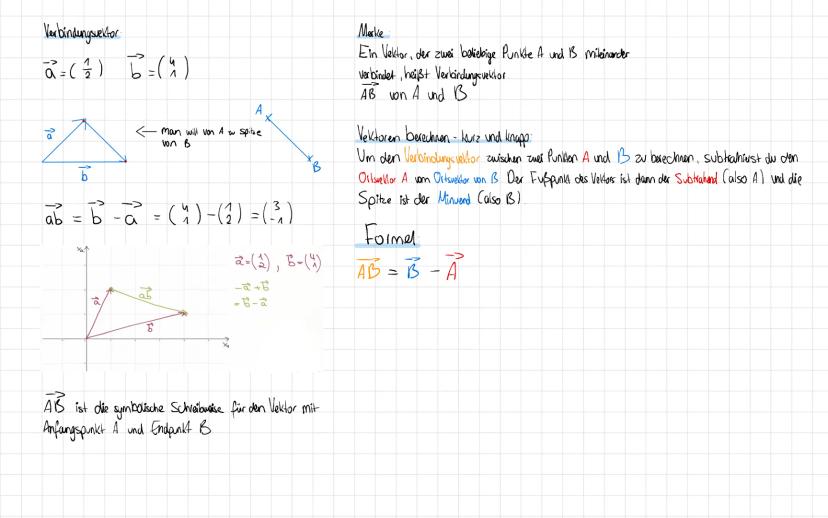 Verbindungsvektor
a⃗ = (1 2)   b⃗ = (4 1)
a⃗
b⃗
← man will von A zu spitze
von B
A
B
ab⃗ = b⃗ - a⃗ = (4 1) - (1 2) = (3 -1)
x₂
a⃗
ab⃗
b⃗
x₁
a⃗ = (1 2), b⃗ = (4 1)
-a⃗ + b⃗
= b⃗ - a⃗
AB⃗ ist die symbolische Schreibweise für den Vektor mit
Anfangspunkt A und Endpunkt B
Merke:
Ein Vektor, der zwei beliebige Punkte A und B miteinander
verbindet, heißt Verbindungsvektor
AB⃗ von A und B
Vektoren berechnen - kurz und knapp:
Um den Verbindungsvektor zwischen zwei Punkten A und B zu berechnen, subtrahierst du den
Ortsvektor A vom Ortsvektor von B. Der Fußpunkt des Vektors ist dann der Subtrahend (also A) und die
Spitze ist der Minuend (also B)
Formel
AB⃗ = B⃗ - A⃗